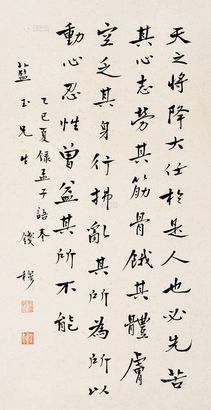 天之將降大任於是人也必先苦
其心志勞其筋骨餓其體膚
空乏其身行拂亂其所為所以
動心忍性曾益其所不能
乙巳夏錄孟子語奉
藍玉先生
錢穆